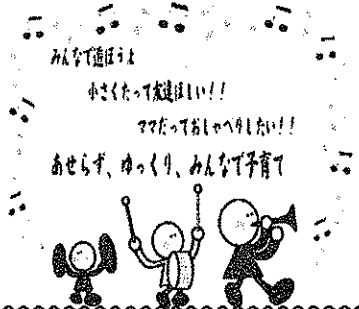 みんなで遊ぼうよ
小さくたって友達ほしい!!
ママだっておしゃべりしたい!!
あせらず、ゆっくり、みんなで子育て